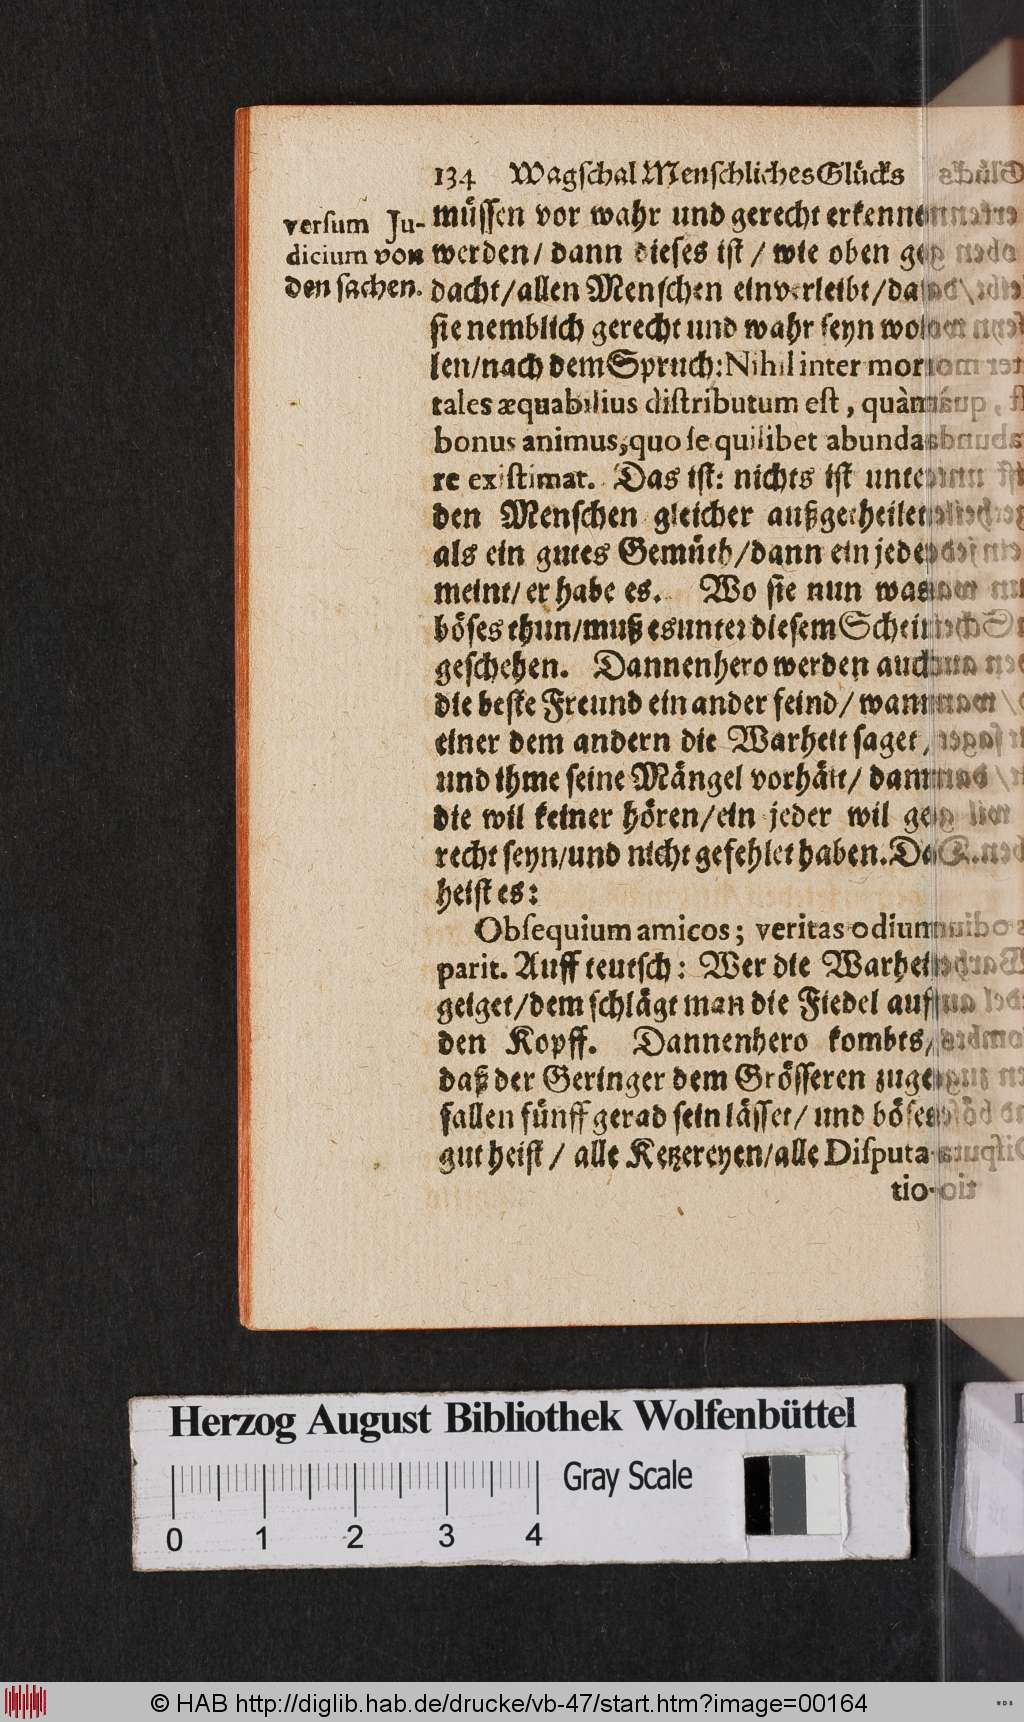 134 Wagschal Menschliches Glücks
versum Ju-
dicium von
den sachen.
müssen vor wahr und gerecht erkennet
werden/ dann dieses ist / wie oben ge-
dacht/allen Menschen einverleibt/daß
sie nemblich gerecht und wahr seyn wol-
len/nach dem Spruch: Nihil inter mor-
tales æquabilius distributum est, quàm
bonus animus, quo se quilibet abunda-
re existimat. Das ist: nichts ist unter
den Menschen gleicher außgetheilet
als ein gutes Gemüth/dann ein jeder
meint/ er habe es. Wo sie nun was
böses thun/muß es unter diesem Schein
geschehen. Dannenhero werden auch
die beste Freund ein ander feind/ wann
einer dem andern die Warheit saget,
und ihme seine Mängel vorhält/ dann
die wil keiner hören/ein jeder wil ge-
recht seyn/und nicht gefehlet haben. Da
heist es:
Obsequium amicos; veritas odium
parit. Auff teutsch: Wer die Warheit
geiget/dem schlägt man die Fiedel auff
den Kopff. Dannenhero kombts/
daß der Geringer dem Grösseren zuge-
fallen fünff gerad sein lässet/ und böses
gut heist / alle Ketzereyen/alle Disputa-
tio-
Herzog August Bibliothek Wolfenbüttel
Gray Scale
0 1 2 3 4
© HAB http://diglib.hab.de/drucke/vb-47/start.htm?image=00164